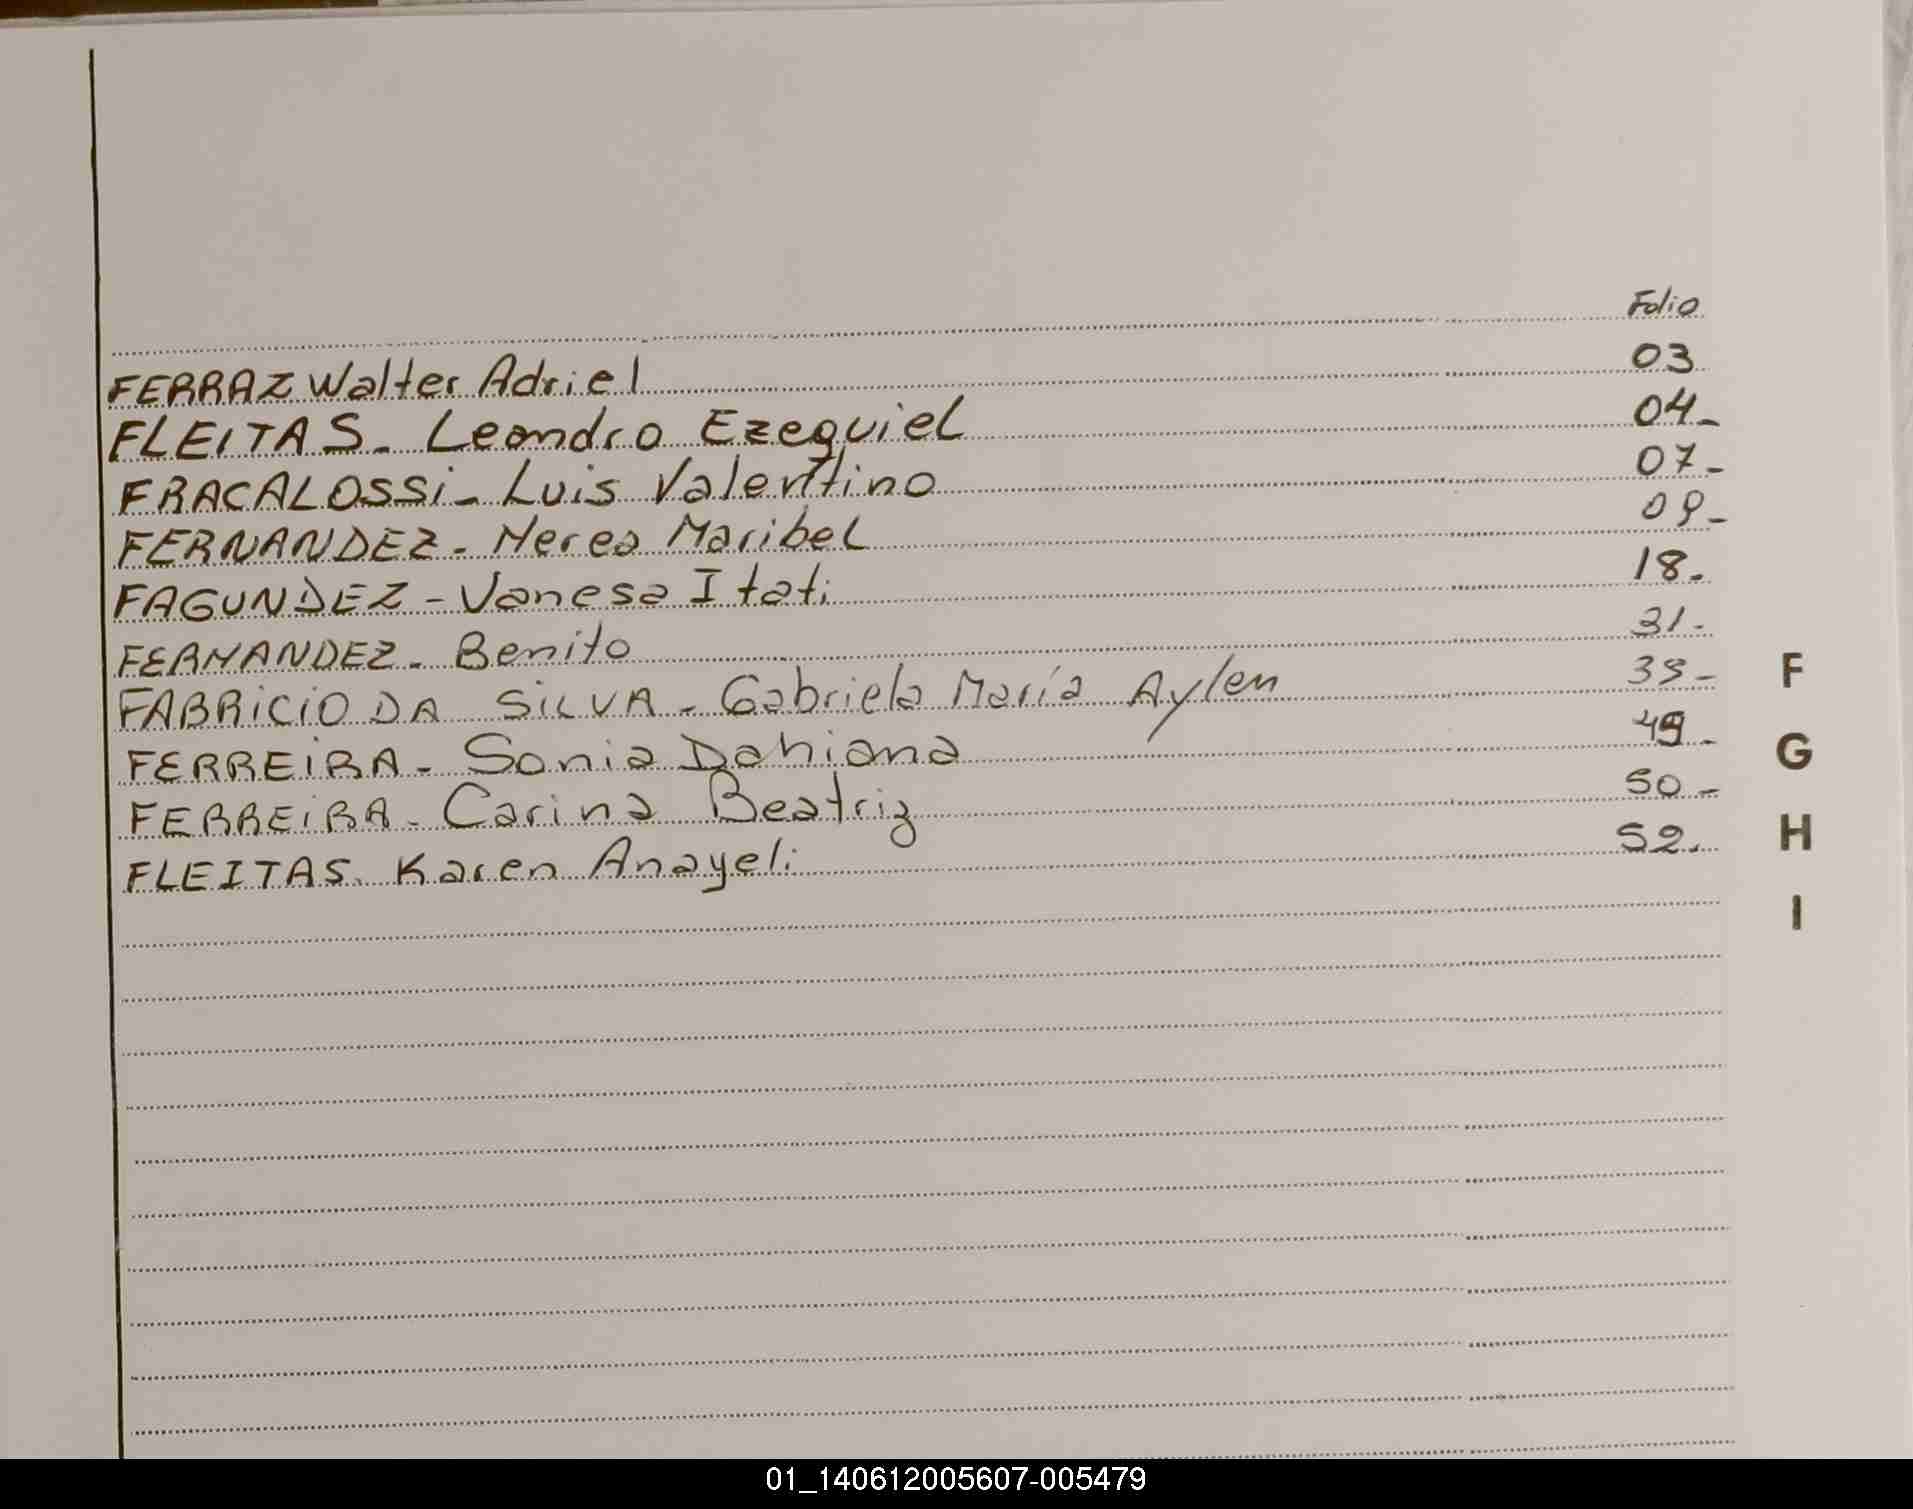 Folio
FERRAZ Walter Adriel 03
FLEITAS - Leandro Ezequiel 04-
FRACALOSSi - Luis Valentino 07-
FERNANDEZ - Nerea Maribel 09-
FAGUNDEZ - Vanesa Itati 18.
FERNANDEZ - Benito 31-
FABRiCiO DA SiLVA - Gabriela María Aylen 39-
FERREiRA - Sonia Dahiana 49-
FERREiRA - Carina Beatriz 50-
FLEITAS. Karen Anayeli 52.
F
G
H
I
01_140612005607-005479